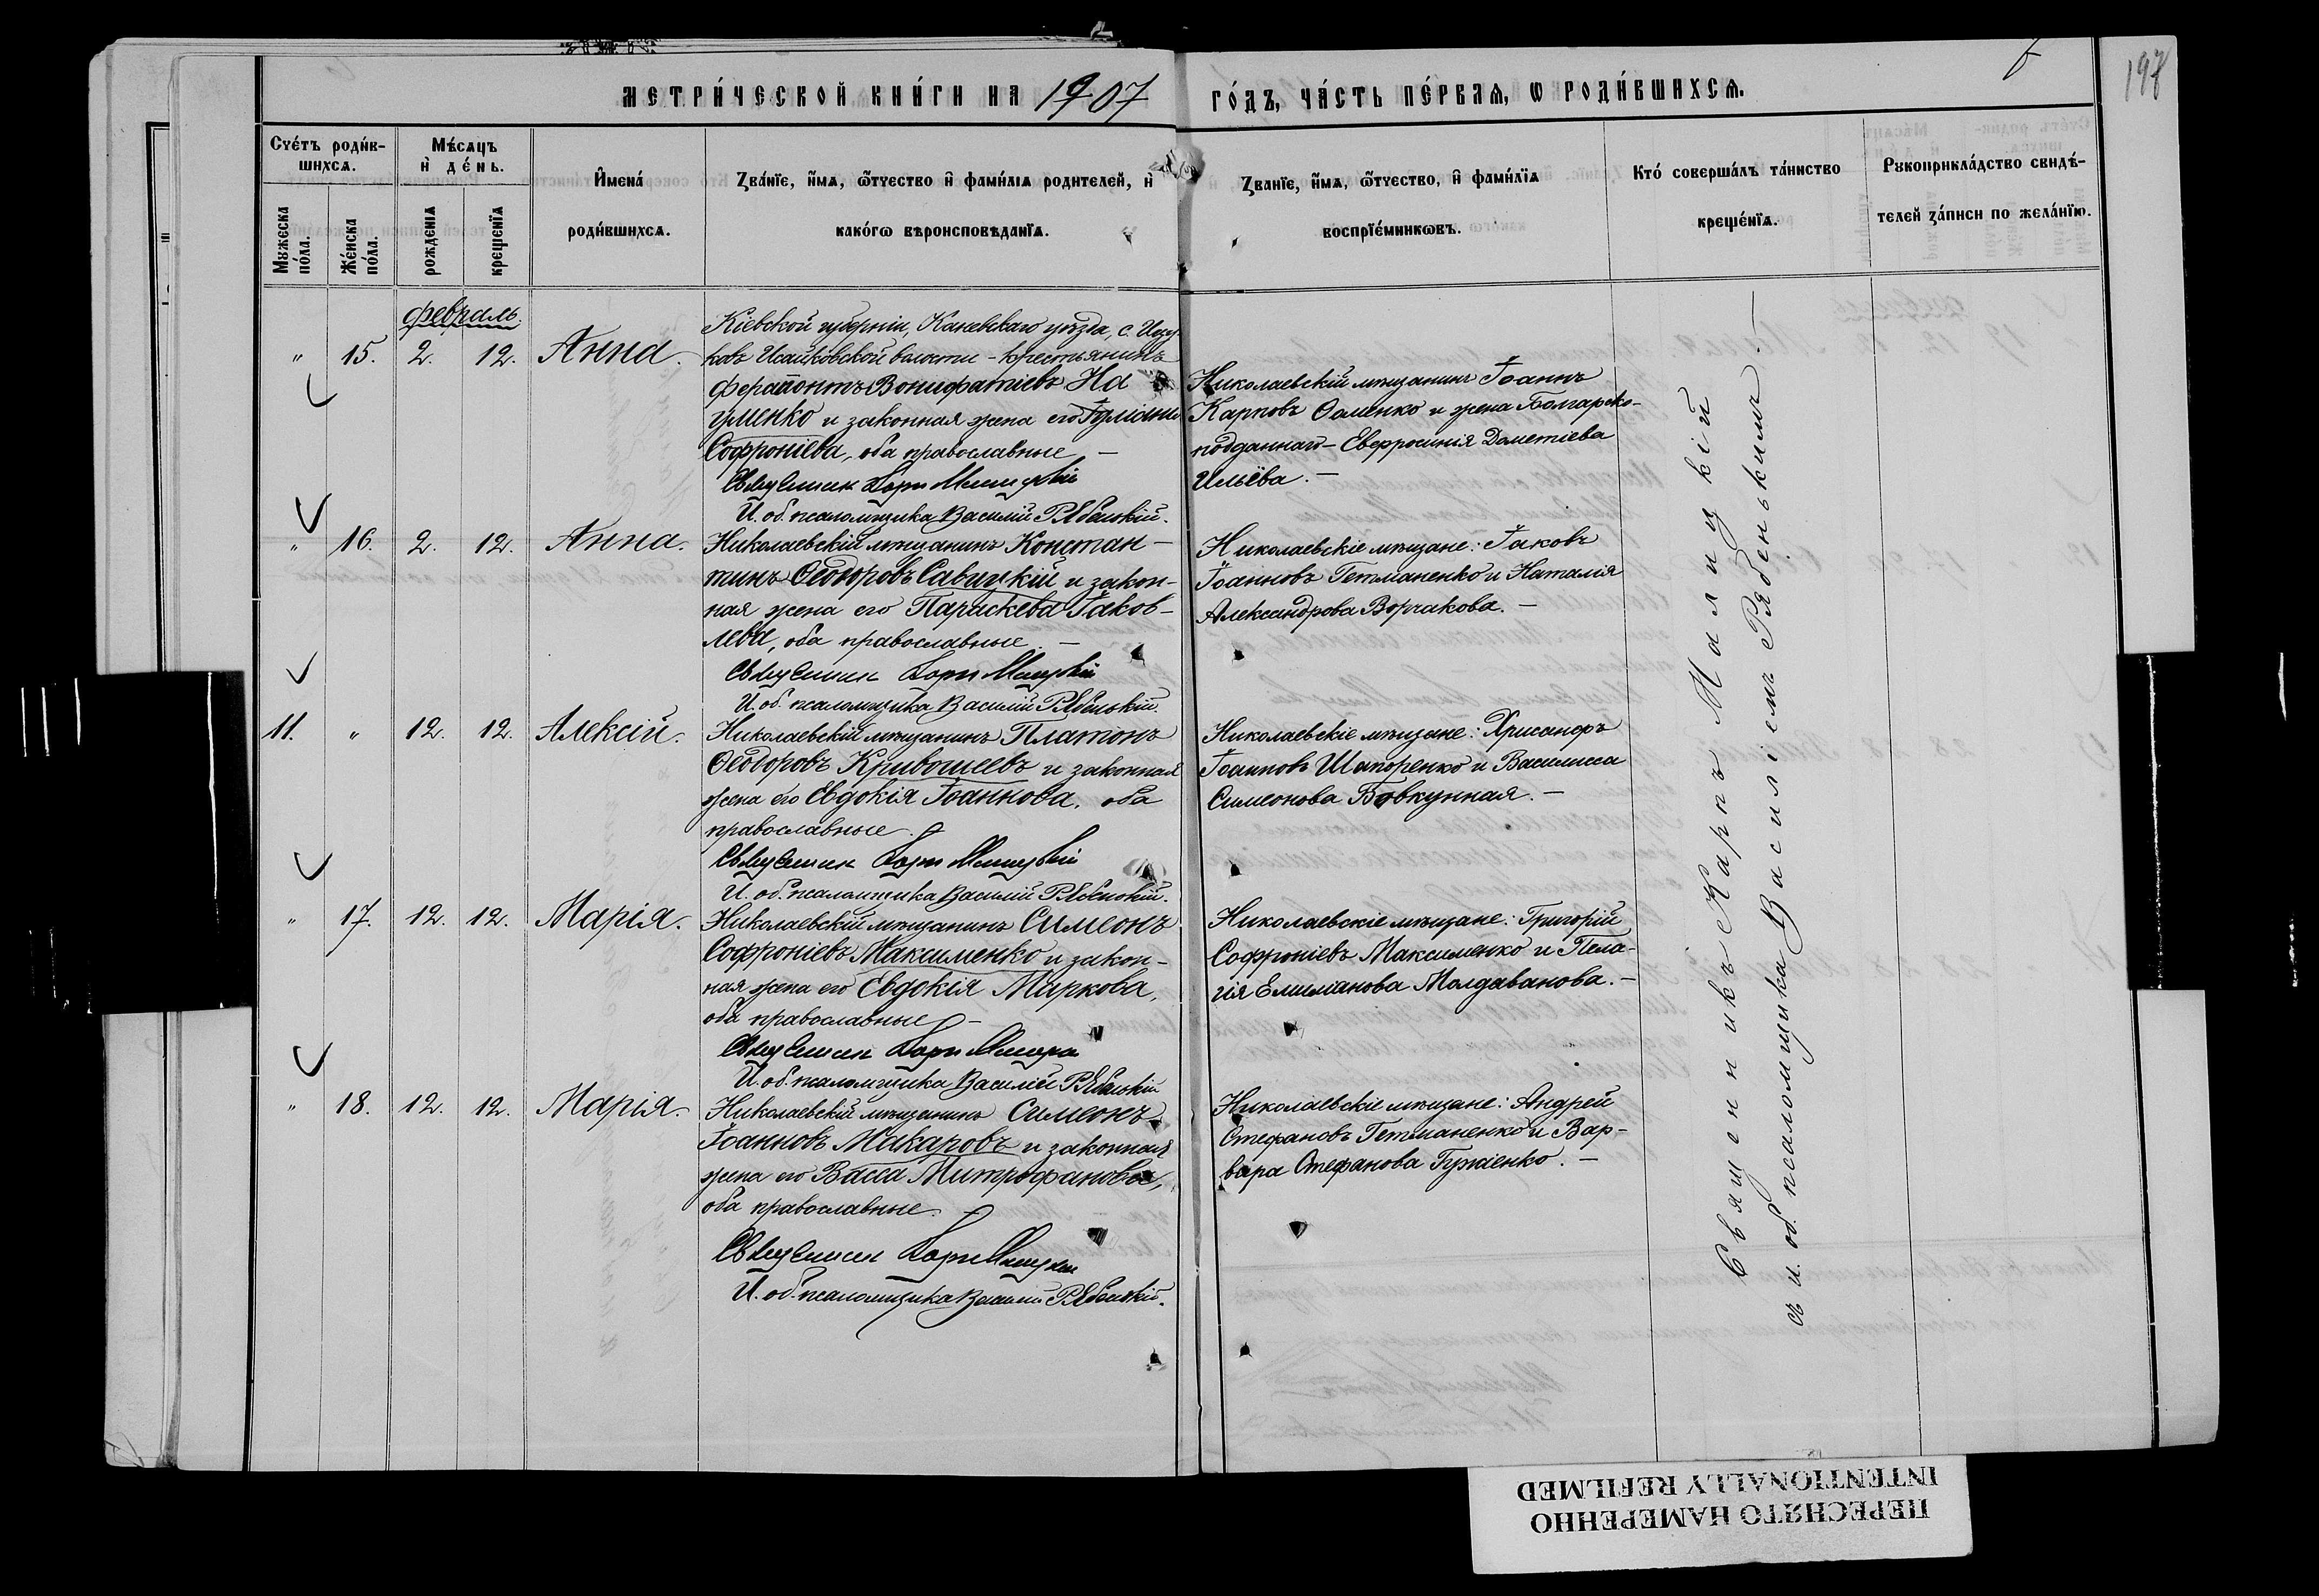 МЕТРИ́ЧЕСКОЙ КНИ́ГИ НА 1907 ГО́ДЪ, ЧА́СТЬ ПЕ́РВАѦ, Ѡ РОДИ́ВШИХСѦ.
197
Сче́тъ роди́в-
шихсѧ.
Мꙋжеска по́ла.
Же́нска по́ла.
Мѣ́сѧцъ
и҆ де́нь.
рожденїѧ
крещенїѧ
И҆мена́
роди́вшихсѧ.
Зва́нїе, и҆́мѧ, ѻ҆́тчество и҆ фами́лїѧ родителей, и҆
како́гѡ вѣроисповѣданїѧ.
Званїе, и҆́мѧ, ѻ҆́тчество, и҆ фами́лїѧ
воспрїе́мникѡвъ.
Кто́ соверша́лъ та́инство
креще́нїѧ.
Рꙋкоприкла́дство свидѣ́-
телей за́писи по жела́нїю.
февраль.
" 15. 2. 12. Анна.
Кіевской губерніи, Каневскаго уѣзда, с.
ковъ Исайковской волости - крестьянинъ
Ферапонтъ Вонифатіевъ На
уменко и законная жена его Іуліанія
Софроніева, оба православные —
Священник Карп Малицкій
И. об. псаломщика Василій Рябенькій.
Николаевскій мѣщанинъ Іоаннъ
Карповъ Оаменко и жена Болгарско-
подданнаго - Евфросинія Дометіева
Ильёва. —
" 16. 2. 12. Анна.
Николаевскій мѣщанинъ Констан-
тинъ Ѳеодоровъ Савицкій и закон-
ная жена его Параскева Іаков-
лева, оба православные. —
Священник Карп Малицкій
И. об. псаломщика Василій Рябенькій.
Николаевскіе мѣщане: Іаковъ
Іоанновъ Гетманенко и Наталія
Александрова Ворчакова. —
11. " 12. 12. Алексій.
Николаевскій мѣщанинъ Платонъ
Ѳеодоровъ Кривошеевъ и законная
жена его Евдокія Іоаннова, оба
православные. —
Священник Карп Малицкій
И. об. псаломщика Василій Рябенькій.
Николаевскіе мѣщане: Хрисанфъ
Іоанновъ Шапоренко и Василисса
Симеонова Бовкунная. —
" 17. 12. 12. Марія.
Николаевскій мѣщанинъ Симеонъ
Софроніевъ Максименко и закон-
ная жена его Евдокія Маркова,
оба православные —
Священник Карп Малицкій
И. об. псаломщика Василій Рябенькій
Николаевскіе мѣщане: Григорій
Софроніевъ Максименко и Пела-
гія Емиліанова Молдаванова. —
" 18. 12. 12. Марія.
Николаевскій мѣщанинъ Симеонъ
Іоанновъ Макаровъ и законная
жена его Васса Митрофанова,
оба православные. —
Священник Карп Малицкій
И. об. псаломщика Василій Рябенькій.
Николаевскіе мѣщане: Андрей
Стефановъ Гетманенко и Вар-
вара Стефанова Гужіенко. —
Священникъ Карпъ Малицкій
съ и. об. псаломщика Василіемъ Рябенькимъ. —
ПЕРЕСНЯТО НАМЕРЕННО
INTENTIONALLY REFILMED